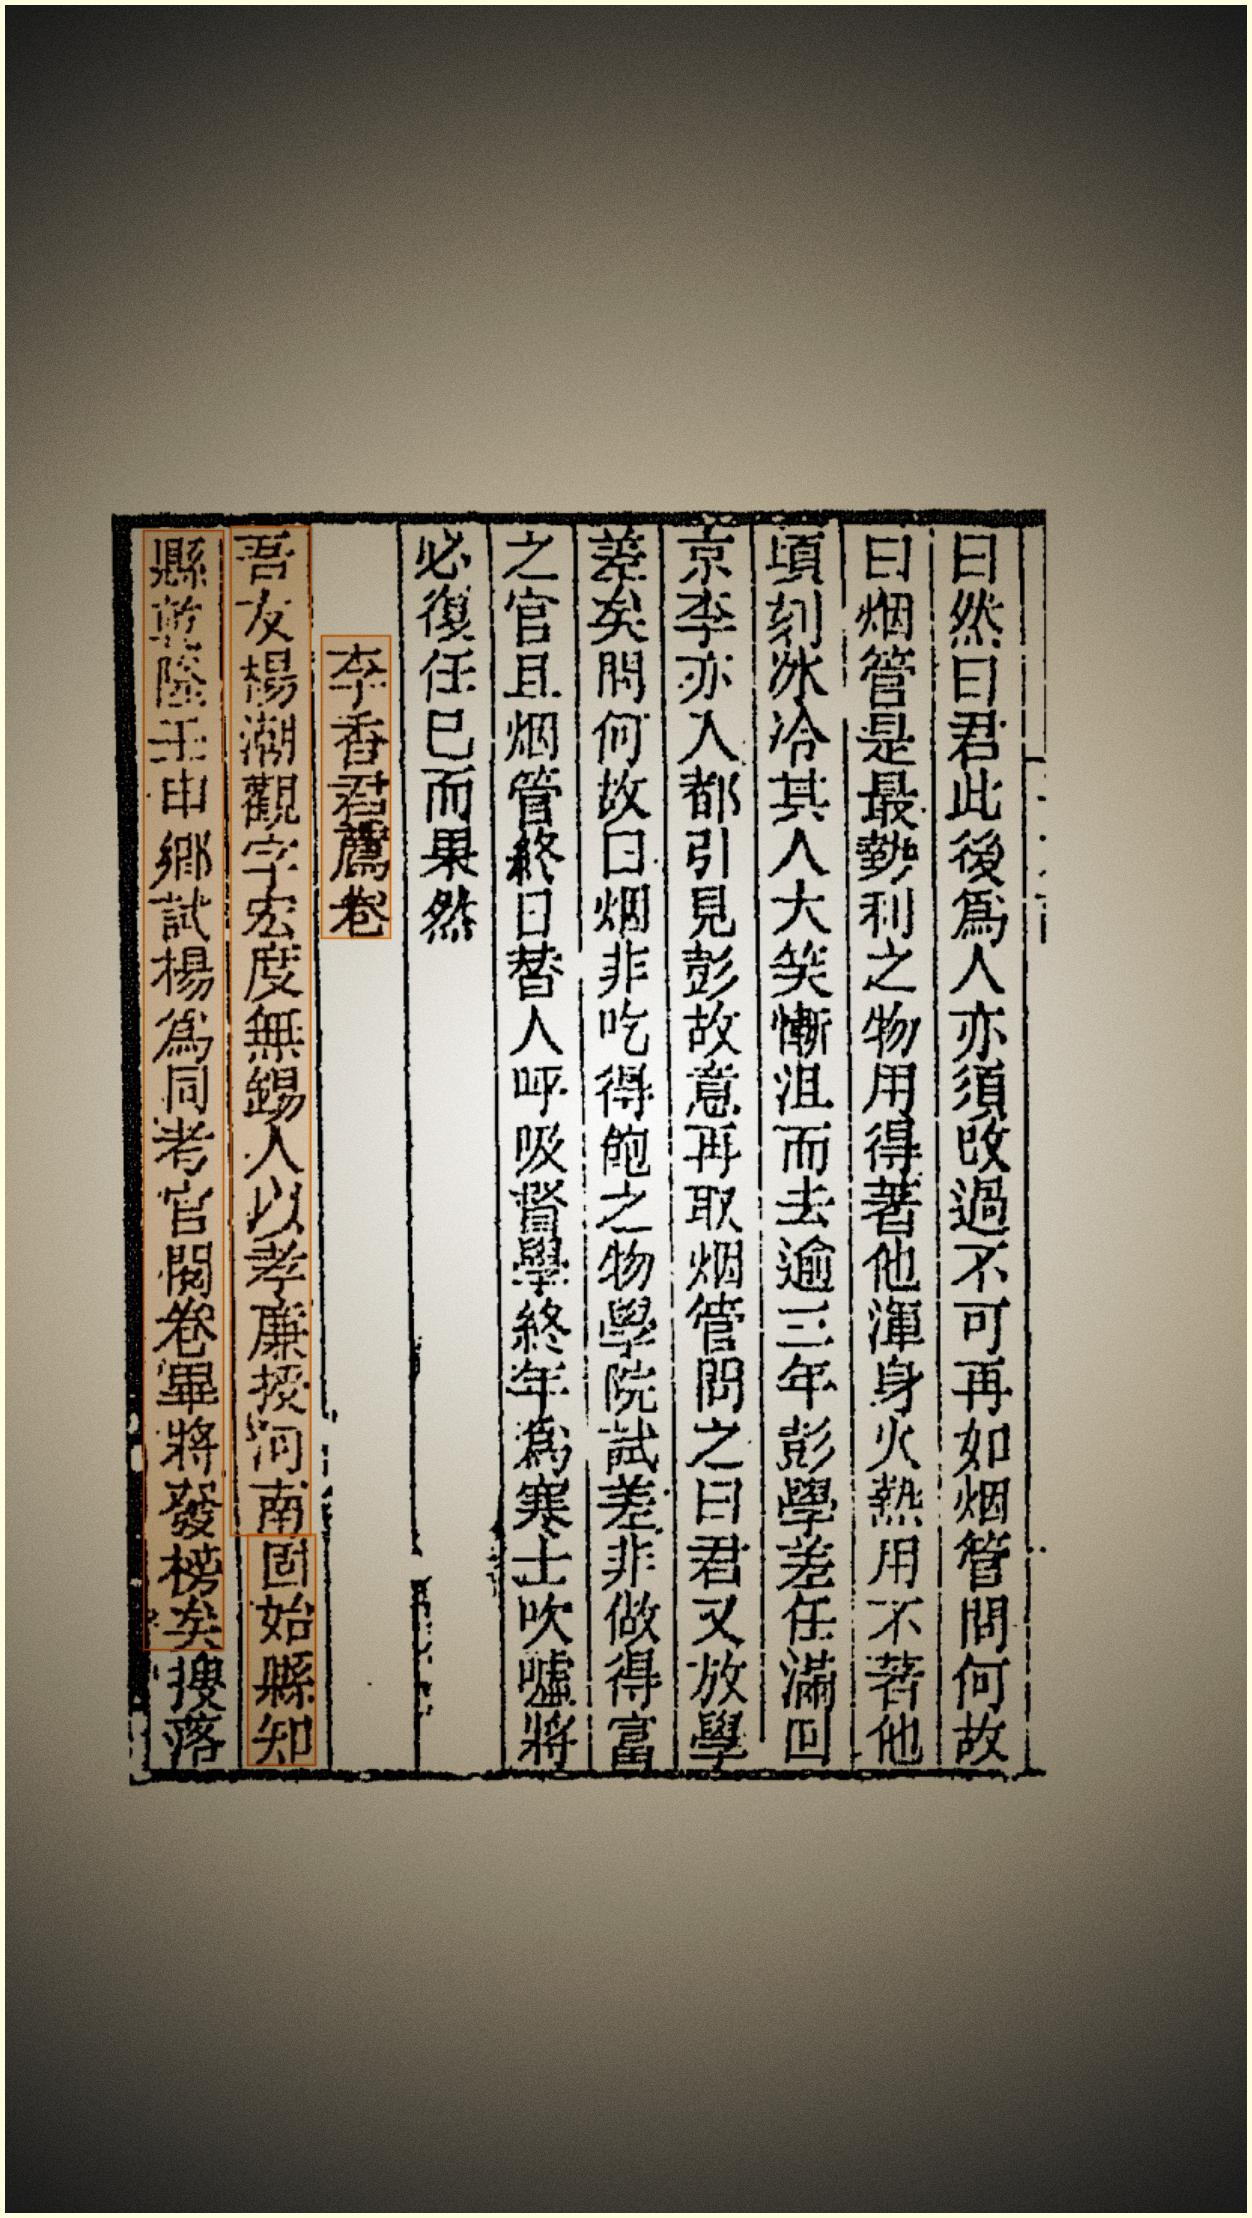 曰然曰君此後爲人亦須改過不可再如烟管問何故
曰烟管是最勢利之物用得著他渾身火熱用不著他
頃刻冰冷其人大笑慚沮而去逾三年彭學差任滿回
京李亦入都引見彭故意再取烟管問之曰君又放學
差矣問何故曰烟非吃得飽之物學院試差非做得富
之官且烟管終日替人呼吸督學終年爲寒士吹噓將
必復任已而果然
李香君薦卷
吾友楊潮觀字宏度無錫人以孝廉授河南固始縣知
縣乾隆壬申鄉試楊爲同考官閱卷畢將發榜矣搜落